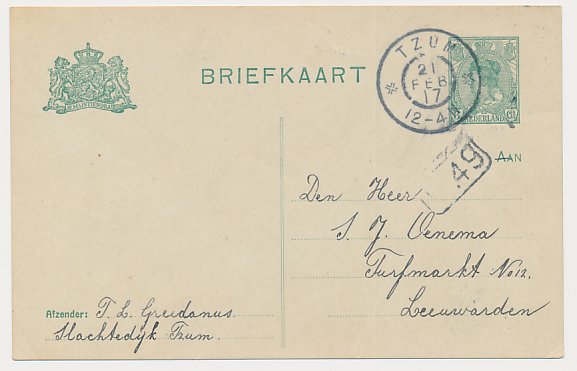 BRIEFKAART
TZUM
21
FEB
17
12-4N
NEDERLAND
AAN
49
Den Heer
S. J. Oenema
Turfmarkt No 12.
Leeuwarden
Afzender: T. L. Greidanus
Slachtedyk Tzum.